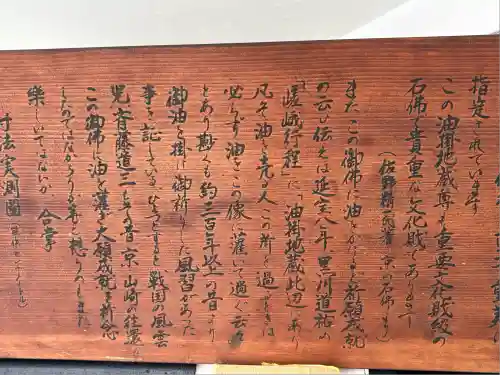 指定されています
この油掛地蔵尊も重要文化財級の
石佛で貴重な文化財であります
(佐野精一氏著 京の石仏より)
また この御佛に油をかけて祈願成就
の云い伝えは延宝八年 黒川道祐の
「嵯峨行程」に「油掛地蔵此辺にあり
凡そ油を売る人この所を過ぐるときは
必らず油をこの像に灌いで過ぐ云々」
とあり尠くも約三百年以上の昔より
御油を掛け御祈りした風習があった
事を証している
戦国の風雲
児 斎藤道三も昔 京 山崎の往還に
この御佛に油を灌ぎ大願成就を祈念
したのではなかろうか等と想うのもまた
楽しいではないか 合掌
寸法(実測図